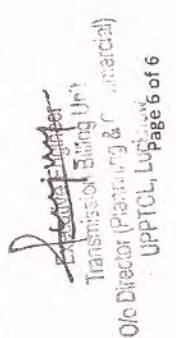 Executive Engineer
Transmission Billing Unit
O/o Director (Planning & C mmercial)
UPPTCL, Lucknow
Page 6 of 6